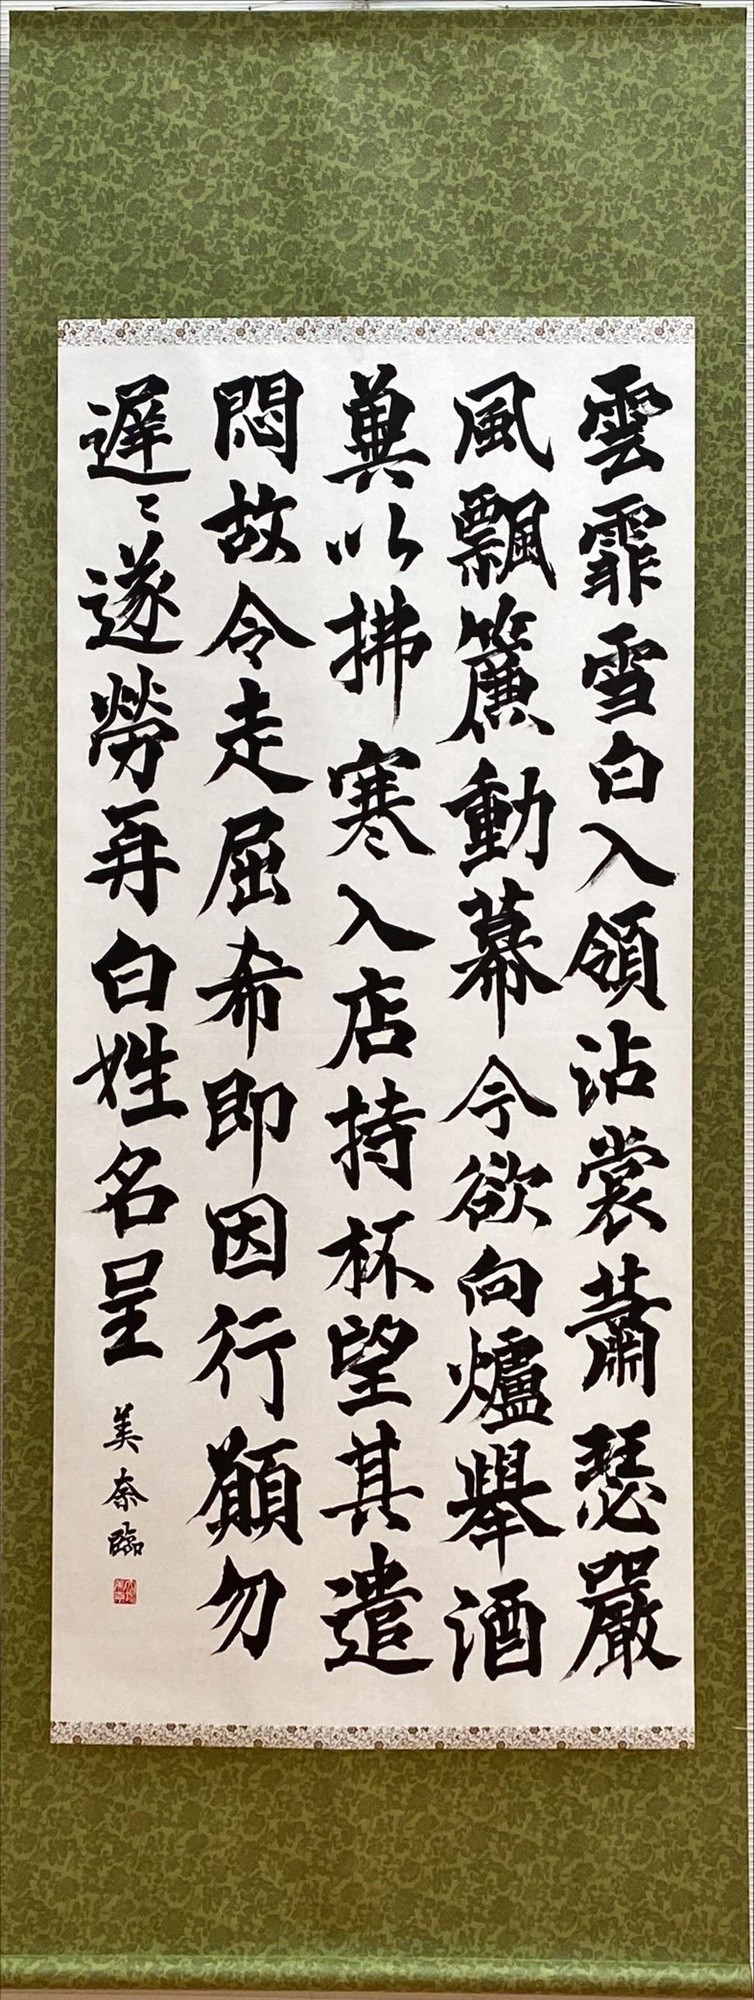 雲霏雪白入領沾裳蕭瑟嚴
風飄簾動幕今欲向爐舉酒
冀以拂寒入店持杯望其遣
悶故令走屈希即因行願勿
遲〻遂勞再白姓名呈
美奈臨